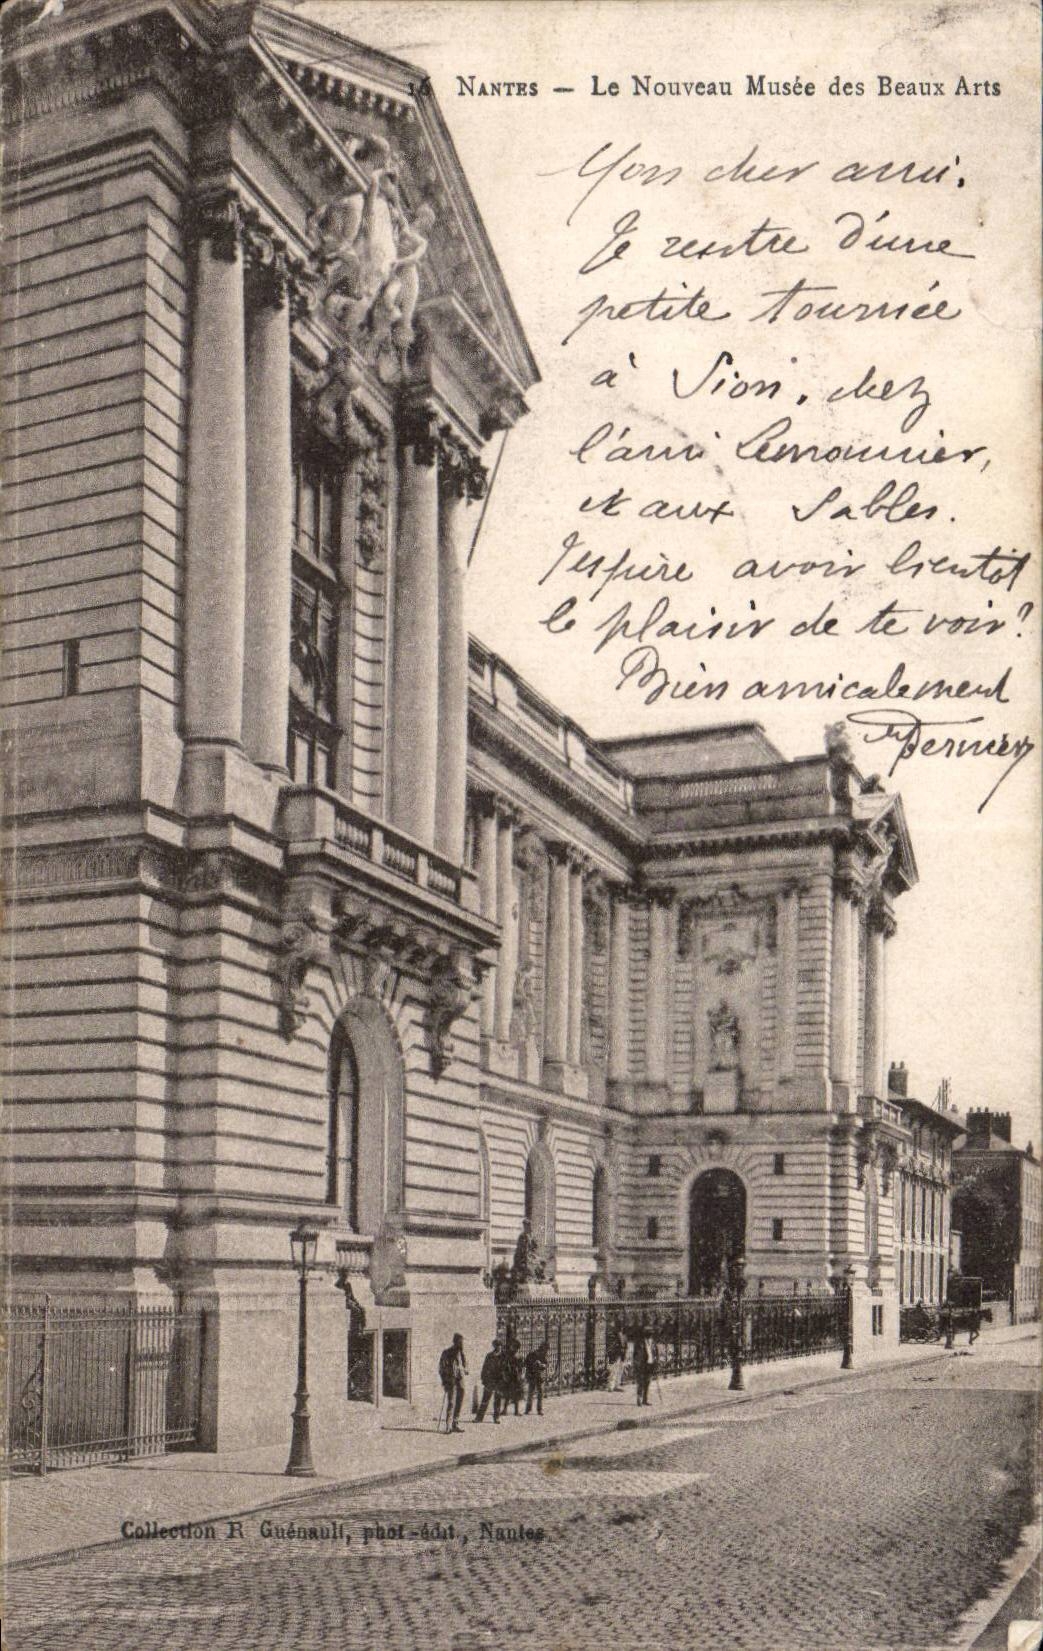 16 NANTES — Le Nouveau Musée des Beaux Arts
Mon cher ami.
Je rentre d'une
petite tournée
à Sion, chez
l'ami Lemonnier,
et aux Sables.
J'espère avoir bientôt
le plaisir de te voir?
Bien amicalement
Collection R Guénault, phot-édit., Nantes